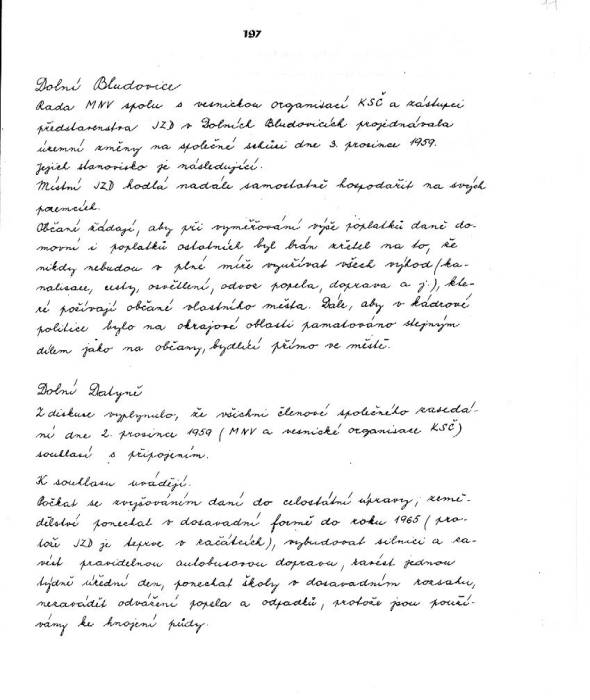 197
11
Dolní Bludovice
Rada MNV spolu s vesnickou organisací KSČ a zástupci
představenstva JZD v Dolních Bludovicích projednávala
územní změny na společné schůzi dne 3. prosince 1959.
Jejich stanovisko je následující.
Místní JZD hodlá nadále samostatně hospodařit na svých
pozemcích.
Občané žádají, aby při vyměřování výše poplatků daně do-
movní i poplatků ostatních byl brán zřetel na to, že
nikdy nebudou v plné míře využívat všech výhod (ka-
nalisace, cesty, osvětlení, odvoz popela, doprava a j.), kte-
ré požívají občané vlastního města. Dále, aby v kádrové
politice bylo na okrajové oblasti pamatováno stejným
dílem jako na občany, bydlící přímo ve městě.
Dolní Datyně
Z diskuse vyplynulo, že všichni členové společného zasedá-
ní dne 2. prosince 1959 (MNV a vesnické organisace KSČ)
souhlasí s připojením.
K souhlasu uvádějí.
Počkat se zvyšováním daní do celostátní úpravy, země-
dělství ponechat v dosavadní formě do roku 1965 (pro-
tože JZD je teprve v začátcích), vybudovat silnici a za-
vést pravidelnou autobusovou dopravu, zavést jednou
týdně úřední den, ponechat školy v dosavadním rozsahu,
nezavádět odvážení popela a odpadků, protože jsou použí-
vány ke hnojení půdy.